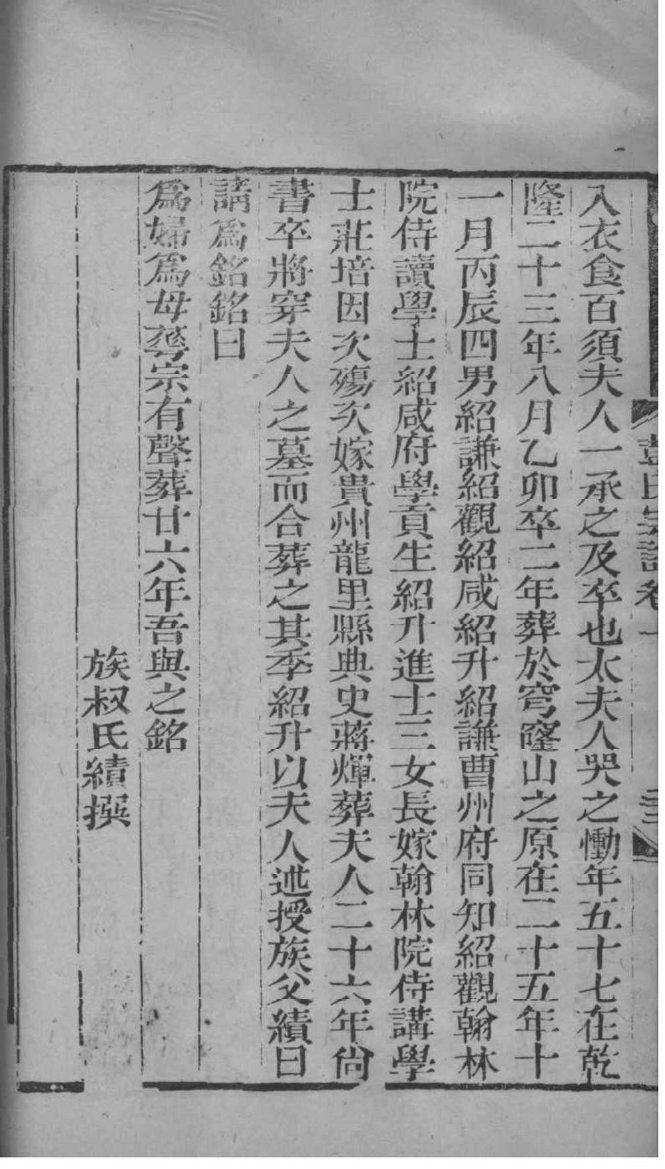 彭氏宗譜卷一
入衣食百須夫人一承之及卒也太夫人哭之慟年五十七在乾
隆二十三年八月乙卯卒二年葬於穹窿山之原在二十五年十
一月丙辰四男紹謙紹觀紹咸紹升紹謙曹州府同知紹觀翰林
院侍讀學士紹咸府學貢生紹升進士三女長嫁翰林院侍講學
士莊培因次殤次嫁貴州龍里縣典史蔣煇葬夫人二十六年尚
書卒將穿夫人之墓而合葬之其季紹升以夫人述授族父績曰
請爲銘銘曰
爲婦爲母蕚宗有聲葬廿六年吾與之銘
族叔氏績撰